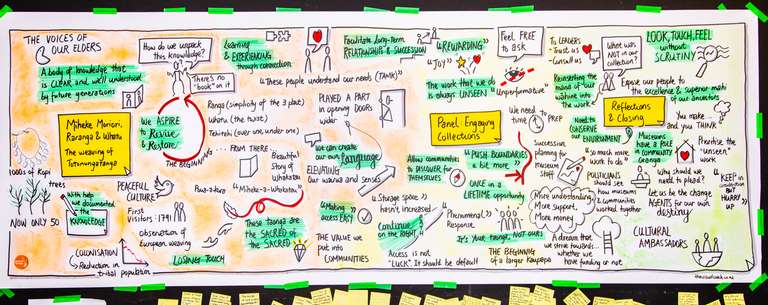 THE VOICES OF
OUR ELDERS
A body of knowledge that
is CLEAR and well understood
by future generations
Miheke Moriori,
Raranga & Whatu
The weaving of
1000s of Kopi
trees
NOW ONLY 50
With help
we documented
the
KNOWLEDGE
COLONISATION
Reduction in
tribal population
How do we unpack
this knowledge?
There's
no "book"
in it
We ASPIRE
to Revive
& Restore
THE BEGINNING
... FROM THERE...
PEACEFUL
CULTURE
First
Visitors 1791
Observation of
European weaving
LOSING TOUCH
Learning
& EXPERIENCING
through connection
"These people understand our needs (TANK)"
Ranga (simplicity of the 3 plait)
Whatu (the twist)
(over one, under one)
Beautiful
Story of
Whakatau
"Miheke-a-Whakatau"
These taonga are
the SACRED OF
the SACRED
PLAYED A PART
in opening DOORS
wider
We can create
our own Language
ELEVATING
Our wairua and senses
"Making
access EASY"
THE VALUE we
put into
COMMUNITIES
Facilitate Long-Term
RELATIONSHIPS & SUCCESSION
"REWARDING"
"JOY"
The work that we do
is always UNSEEN
Feel FREE
to ask
"Unperformative"
Panel Engaging
Collections
We need
time to PREP
Allow communities
to DISCOVER for
THEMSELVES
"PUSH BOUNDARIES
a bit more"
ONCE in a
LIFETIME opportunity
"Storage space
hasn't increased"
Continue
on the RIGHT
"Phenomenal"
Response
It's Your taonga, NOT OURS
Access is not
"LUCK". It should be default
THE BEGINNING
of a larger Kaupapa
To LEADERS
- Trust us
- Consult us
What was
NOT in our
collection?
LOOK, TOUCH, FEEL
without
SCRUTINY
Reinserting the
mana of our
into
The work
Expose our people to
the excellence & superior mahi
of our ancestors
Need to
CONSERVE
ENVIRONMENT
Reflections
& Closing
You make...
and you THINK
Succession
planning for
Museum
staff
"so much more
work to do"
Museums
have a ROLE
in COMMUNITY
Prioritise the
"unseen"
work
POLITICIANS
should see
how museums
& communities
worked together
Why should we
need to plead?
Let us be the change
AGENTS for our own
destiny
"KEEP IT
HURRY
UP"
More understanding
More support,
More money
A dream that
we strive towards
whether we
have funding or not
CULTURAL
AMBASSADORS